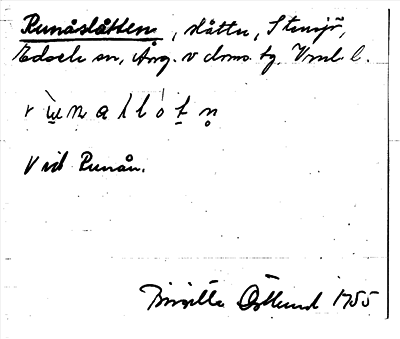 Runåslåtten, slåtter, Stensjö,
Edsele sn, Ång. v. doms. tg. Vnl. l.
Vid Runån.
Birgitta Östlund 1955